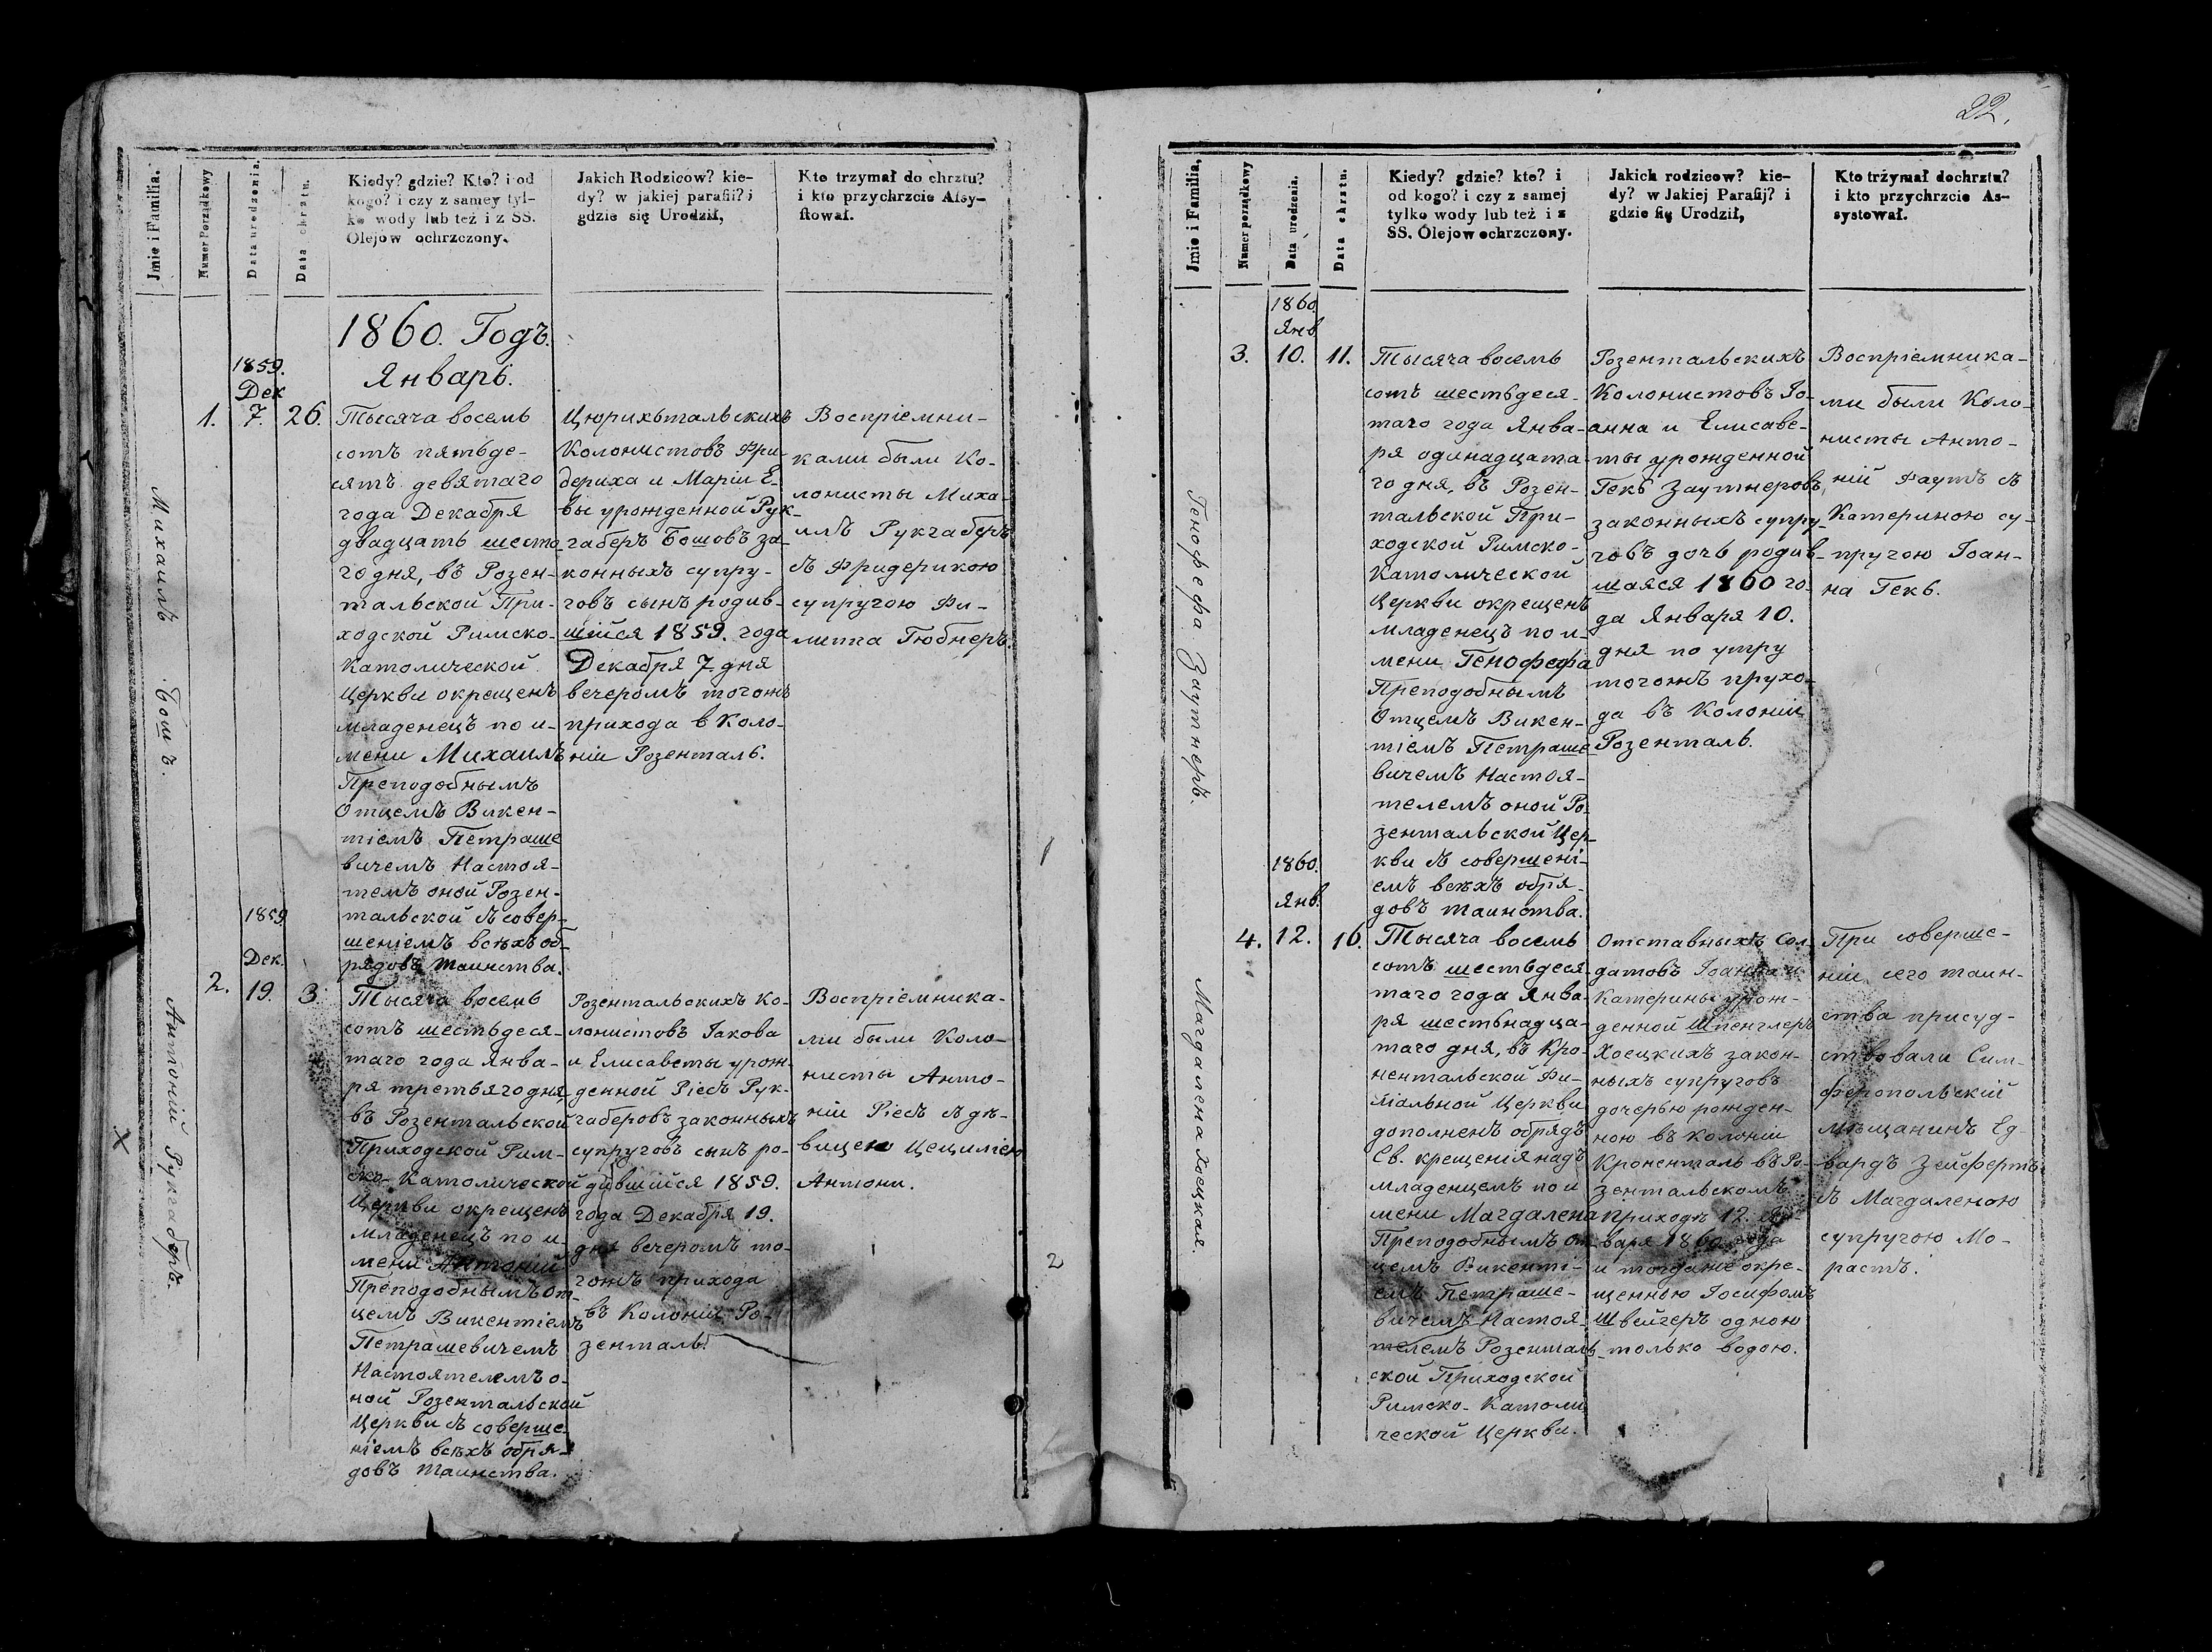 22.
Jmie i Familia.
Numer Porządkowy
Data urodzenia.
Data chrztu.
Kiedy? gdzie? Kto? i od
kogo? i czy z samey tyl-
ko wody lub też i z SS.
Olejow ochrzczony.
Jakich Rodzicow? kie-
dy? w jakiej parafii? i
gdzie się Urodził,
Kto trzymał do chrztu?
i kto przychrzcie Assy-
stował.
1860. Годъ.
Январь.
Михаилъ Бошъ.
1.
1859.
Дек
7.
26.
Тысяча восемь
сотъ пятьде-
сятъ девятаго
года Декабря
двадцать шеста-
го дня, въ Розен-
тальской При-
ходской Римско-
Католической
Церкви окрещенъ
младенецъ по и-
мени Михаилъ
Преподобнымъ
Отцемъ Викен-
тіемъ Петраше
вичемъ Настоя-
темъ оной Розен-
тальской съ совер-
шеніемъ всѣхъ об-
рядовъ таинства.
Цюрихьтальскихъ
Колонистовъ Фри-
дериха и Маріи Е-
вы урожденной Рук-
габеръ Бошовъ за-
конныхъ супру-
говъ сынъ родив-
шійся 1859. года
Декабря 7 дня
вечеромъ тогожъ
прихода в Коло-
ніи Розенталь.
Воспріемни-
ками были Ко-
лонисты Миха-
илъ Рукгаберъ
съ Фридерикою
супругою Фи-
липпа Гюбнеръ.
Антоній Рукгаберъ.
2.
1859
Дек.
19.
3.
Тысяча восемь
сотъ шестьдеся-
таго года Янва-
ря третьяго дня
въ Розентальской
Приходской Рим-
ско-Католической
Церкви окрещенъ
младенецъ по и-
мени Антоній
Преподобнымъ От-
цемъ Викентіемъ
Петрашевичемъ
Настоятелемъ о-
ной Розентальской
Церкви съ соверше-
ніемъ всѣхъ обря-
довъ таинства.
Розентальскихъ Ко-
лонистовъ Іакова
и Елисаветы урож-
денной Ріссъ Рук-
габеровъ законныхъ
супруговъ сынъ ро-
дившійся 1859.
года Декабря 19.
дня вечеромъ то-
гожъ прихода
въ Колоніи Ро-
зенталь.
Воспріемника-
ми были Коло-
нисты Анто-
ній Ріссъ съ дѣ-
вицею Цециліею
Антони.
1
2
Jmie i Familia,
Numer porządkowy
Data urodzenia.
Data chrztu.
Kiedy? gdzie? kto? i
od kogo? i czy z samej
tylko wody lub też i z
SS. Olejow ochrzczony.
Jakich rodzicow? kie-
dy? w Jakiej Parafij? i
gdzie się Urodził,
Kto trżymał dochrztu?
i kto przychrzcie As-
systował.
Генофефа Заутнеръ.
3.
1860.
Янв
10.
11.
Тысяча восемь
сотъ шестьдеся-
таго года Янва-
ря одинадцата-
го дня, въ Розен-
тальской При-
ходской Римско-
Католической
Церкви окрещенъ
младенецъ по и-
мени Генофефа
Преподобнымъ
Отцемъ Викен-
тіемъ Петраше
вичемъ Настоя-
телемъ оной Ро-
зентальской Цер-
кви съ совершені-
емъ всѣхъ обря-
довъ таинства.
Розентальскихъ
Колонистовъ Іо-
анна и Елисаве-
ты урожденной
Гекъ Заутнеровъ
законныхъ супру-
говъ дочь родив-
шаяся 1860 го-
да Января 10.
дня по утру
тогожъ прухо-
да въ Колоніи
Розенталь.
Воспріемника-
ми были Коло-
нисты Анто-
ній Фаутъ съ
Катериною су-
пругою Іоан-
на Гекъ.
Магдалена Хоецкая.
4.
1860.
Янв.
12.
16.
Тысяча восемь
сотъ шестьдеся-
таго года Янва-
ря шестьнадца-
таго дня, въ Кро-
нентальской Фи-
ліальной Церкви
дополненъ обрядъ
Св. крещенія надъ
младенцемъ по и
мени Магдалена
Преподобнымъ От-
цемъ Викенті-
емъ Петраше-
вичемъ Настоя-
телемъ Розенталь-
ской Приходской
Римско-Католи
ческой Церкви.
Отставныхъ Сол-
датовъ Іоанна и
Катерины урож-
денной Шпенглеръ
Хоецкихъ закон-
ныхъ супруговъ
дочерью рожден-
ною въ колоніи
Кроненталь въ Ро-
зентальскомъ
приходѣ 12. Ян-
варя 1860 года
и тогдаже окре-
щенною Іосифомъ
Швейгеръ одною
только водою.
При соверше-
ніи сего таин-
ства присуд-
ствовали Сим-
феропольскій
мѣщанинъ Ед-
вардъ Зейфертъ
съ Магдаленою
супругою Мо-
растъ.